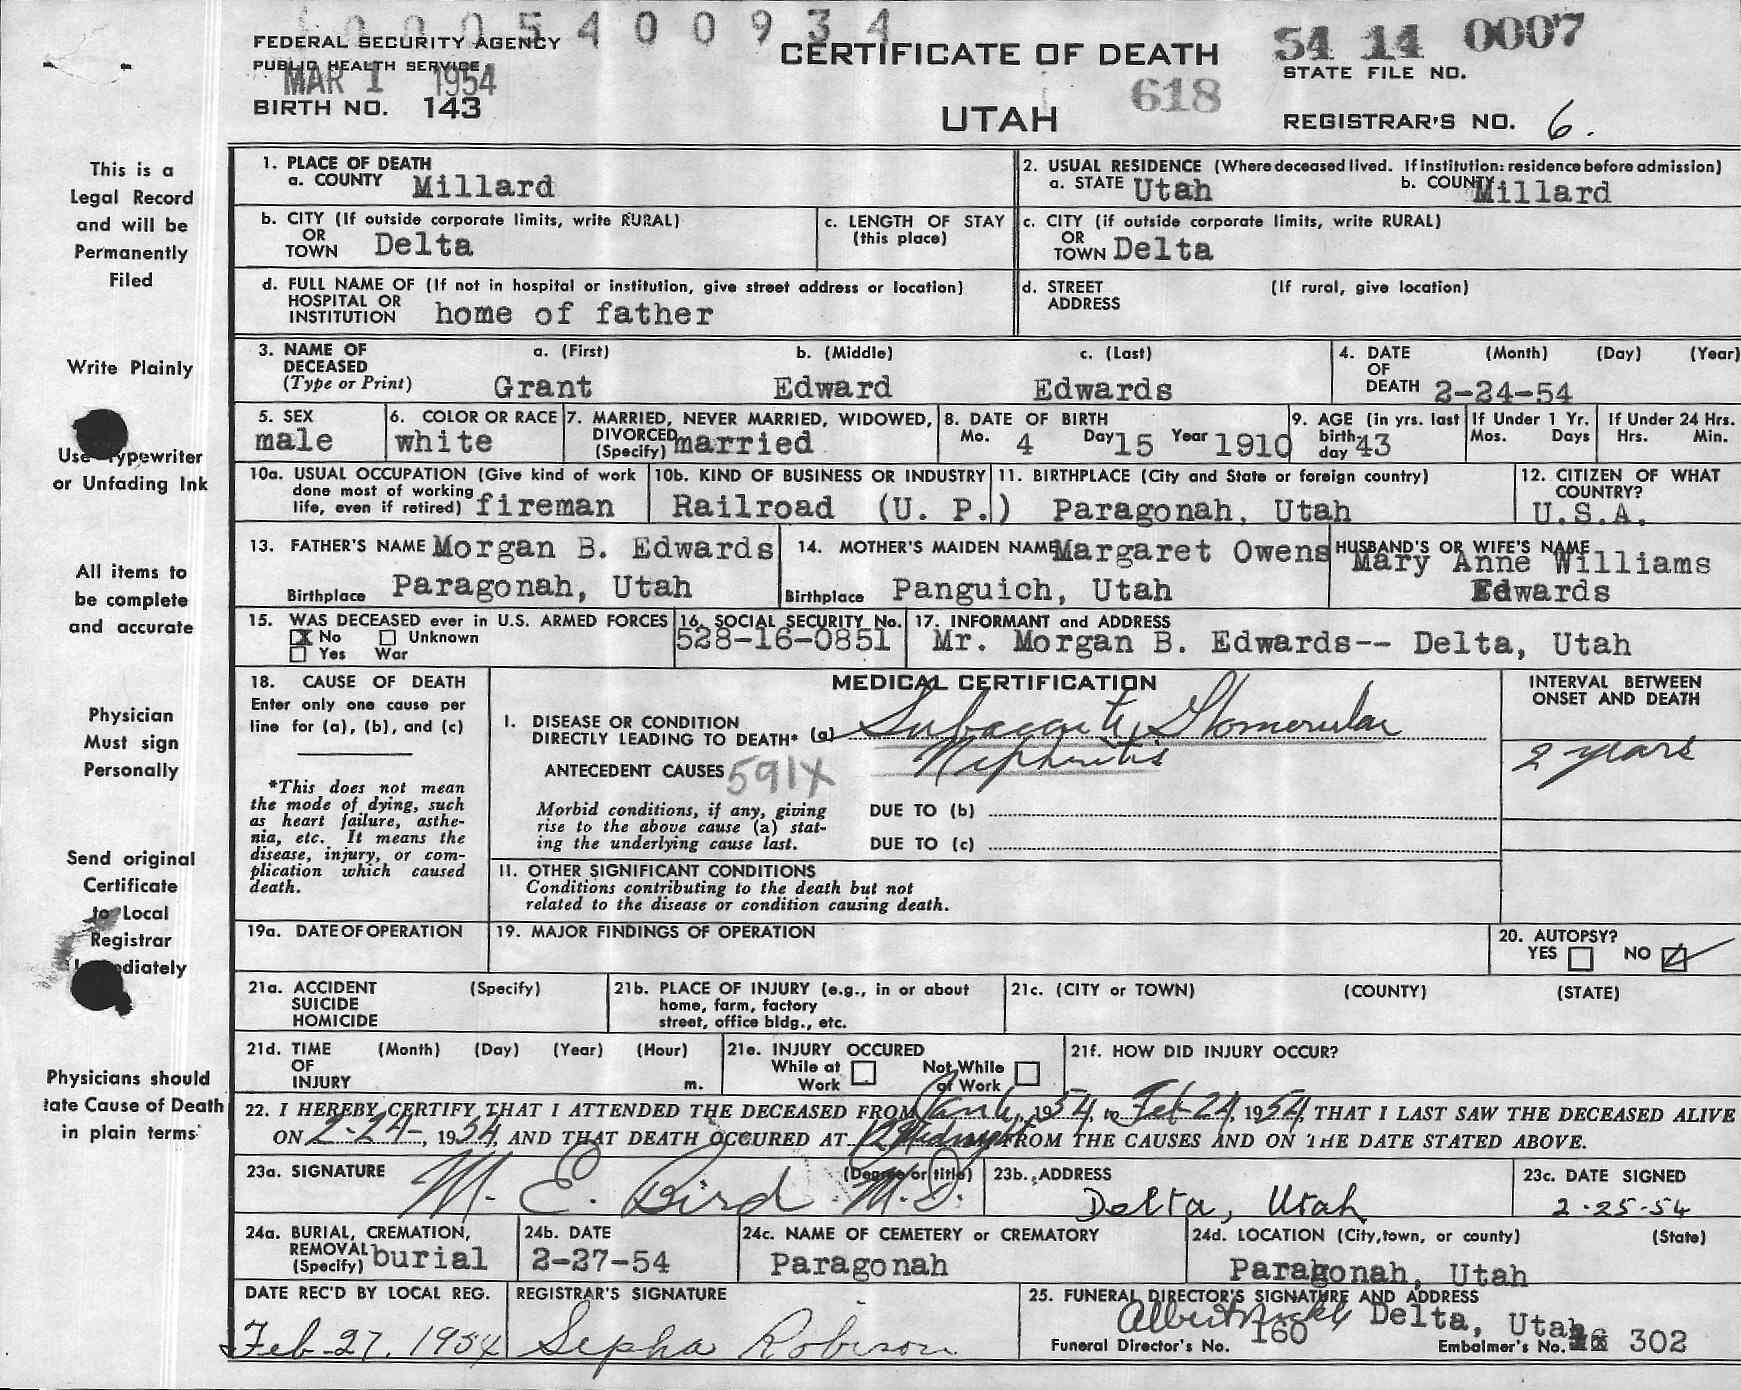 1 0 0 0 5 4 0 0 9 3 4
FEDERAL SECURITY AGENCY
PUBLIC HEALTH SERVICE
MAR 1 1954
BIRTH NO. 143
CERTIFICATE OF DEATH
UTAH
618
54 14 0007
STATE FILE NO.
REGISTRAR'S NO. 6.
This is a
Legal Record
and will be
Permanently
Filed
Write Plainly
Use Typewriter
or Unfading Ink
All items to
be complete
and accurate
Physician
Must sign
Personally
Send original
Certificate
to Local
Registrar
Immediately
Physicians should
tate Cause of Death
in plain terms
1. PLACE OF DEATH
a. COUNTY Millard
2. USUAL RESIDENCE (Where deceased lived. If institution: residence before admission)
a. STATE Utah b. COUNTY Millard
b. CITY (If outside corporate limits, write RURAL)
OR
TOWN Delta
c. LENGTH OF STAY
(this place)
c. CITY (if outside corporate limits, write RURAL)
OR
TOWN Delta
d. FULL NAME OF (If not in hospital or institution, give street address or location)
HOSPITAL OR
INSTITUTION home of father
d. STREET (If rural, give location)
ADDRESS
3. NAME OF a. (First) b. (Middle) c. (Last)
DECEASED
(Type or Print) Grant Edward Edwards
4. DATE (Month) (Day) (Year)
OF
DEATH 2-24-54
5. SEX
male
6. COLOR OR RACE
white
7. MARRIED, NEVER MARRIED, WIDOWED,
DIVORCED
(Specify) married
8. DATE OF BIRTH
Mo. 4 Day 15 Year 1910
9. AGE (in yrs. last
birth-
day 43
If Under 1 Yr.
Mos. Days
If Under 24 Hrs.
Hrs. Min.
10a. USUAL OCCUPATION (Give kind of work
done most of working
life, even if retired) fireman
10b. KIND OF BUSINESS OR INDUSTRY
Railroad (U. P.)
11. BIRTHPLACE (City and State or foreign country)
Paragonah, Utah
12. CITIZEN OF WHAT
COUNTRY?
U.S.A.
13. FATHER'S NAME Morgan B. Edwards
Birthplace Paragonah, Utah
14. MOTHER'S MAIDEN NAME Margaret Owens
Birthplace Panguich, Utah
HUSBAND'S OR WIFE'S NAME
Mary Anne Williams
Edwards
15. WAS DECEASED ever in U.S. ARMED FORCES
X No Unknown
Yes War
16. SOCIAL SECURITY No.
528-16-0851
17. INFORMANT and ADDRESS
Mr. Morgan B. Edwards-- Delta, Utah
18. CAUSE OF DEATH
Enter only one cause per
line for (a), (b), and (c)
*This does not mean
the mode of dying, such
as heart failure, asthe-
nia, etc. It means the
disease, injury, or com-
plication which caused
death.
MEDICAL CERTIFICATION
I. DISEASE OR CONDITION
DIRECTLY LEADING TO DEATH* (a) Subacute Glomerular
Nephritis
ANTECEDENT CAUSES 591X
Morbid conditions, if any, giving
rise to the above cause (a) stat-
ing the underlying cause last.
DUE TO (b)
DUE TO (c)
II. OTHER SIGNIFICANT CONDITIONS
Conditions contributing to the death but not
related to the disease or condition causing death.
INTERVAL BETWEEN
ONSET AND DEATH
2 years
19a. DATE OF OPERATION
19. MAJOR FINDINGS OF OPERATION
20. AUTOPSY?
YES NO
21a. ACCIDENT (Specify)
SUICIDE
HOMICIDE
21b. PLACE OF INJURY (e.g., in or about
home, farm, factory
street, office bldg., etc.
21c. (CITY or TOWN) (COUNTY) (STATE)
21d. TIME (Month) (Day) (Year) (Hour)
OF
INJURY m.
21e. INJURY OCCURED
While at Not While
Work at Work
21f. HOW DID INJURY OCCUR?
22. I HEREBY CERTIFY THAT I ATTENDED THE DECEASED FROM 1954, to Feb-24, 1954, THAT I LAST SAW THE DECEASED ALIVE
ON 2-24-, 1954, AND THAT DEATH OCCURED AT 12 Midnight FROM THE CAUSES AND ON THE DATE STATED ABOVE.
23a. SIGNATURE (Degree or title)
M. E. Bird M.D.
23b. ADDRESS
Delta, Utah
23c. DATE SIGNED
2-25-54
24a. BURIAL, CREMATION,
REMOVAL
(Specify) burial
24b. DATE
2-27-54
24c. NAME OF CEMETERY or CREMATORY
Paragonah
24d. LOCATION (City, town, or county) (State)
Paragonah, Utah
DATE REC'D BY LOCAL REG.
Feb. 27, 1954
REGISTRAR'S SIGNATURE
Sepha Robison
25. FUNERAL DIRECTOR'S SIGNATURE AND ADDRESS
Delta, Utah
Funeral Director's No. 160 Embalmer's No. 302